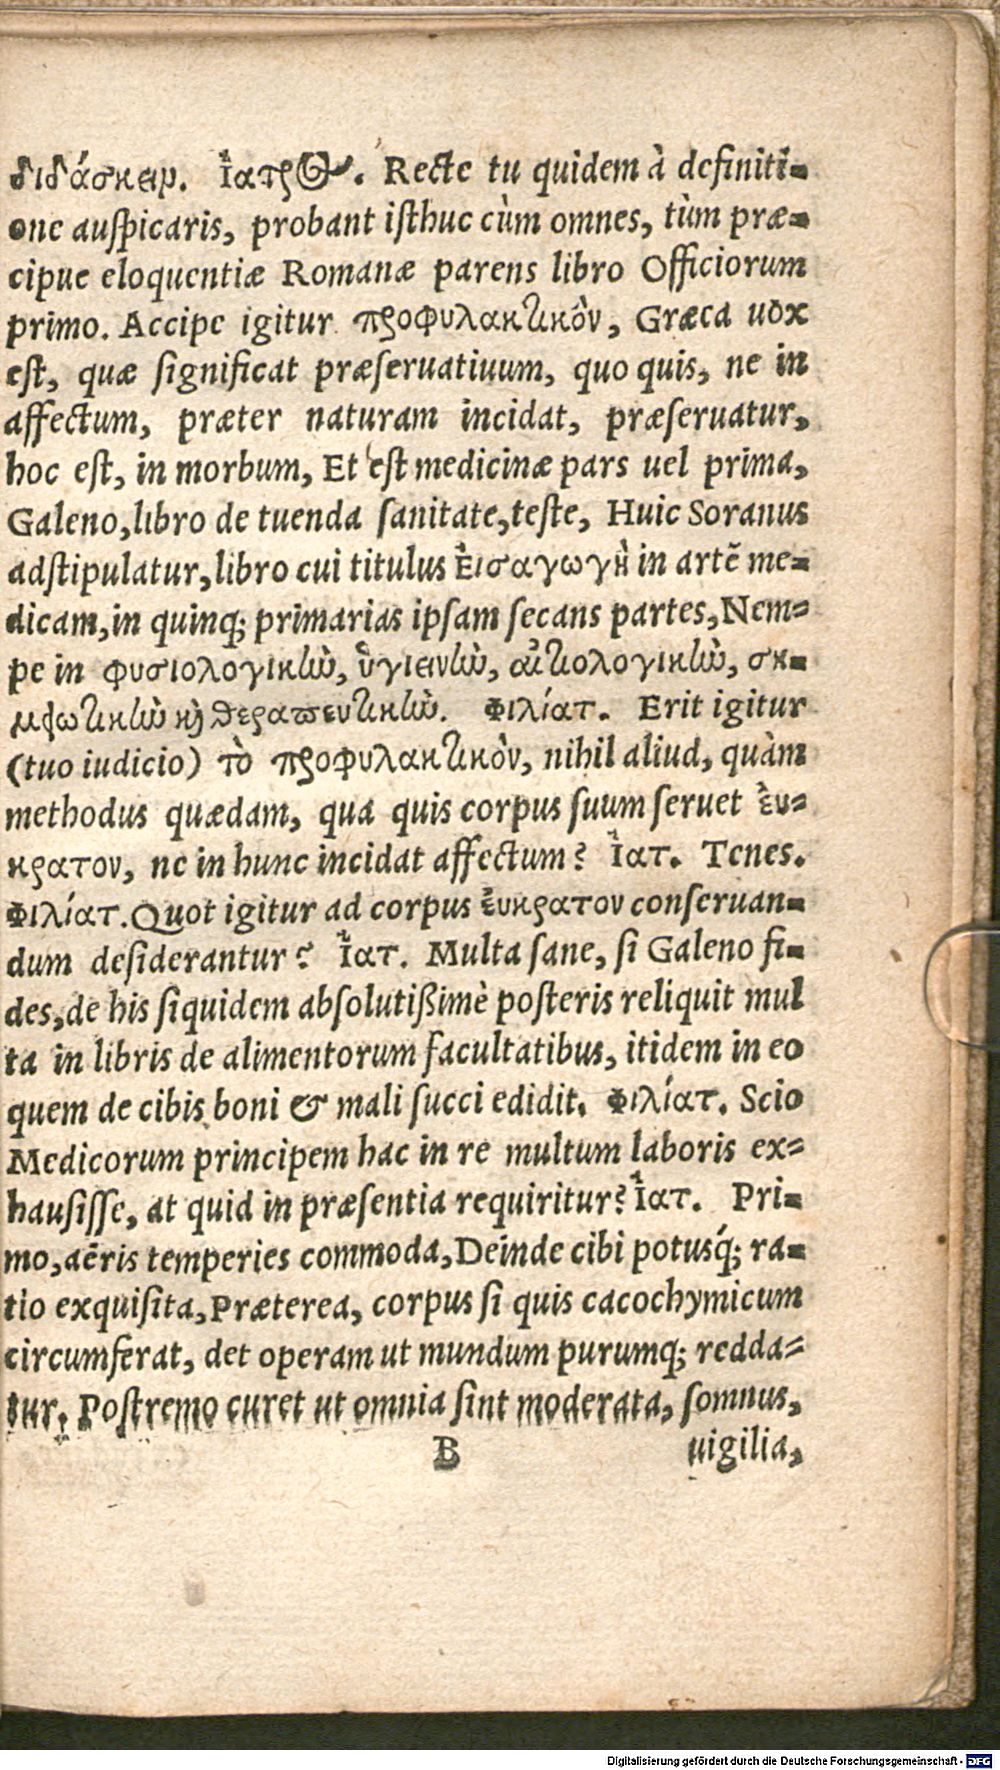 διδάσκειν. Ἰατρὸς. Recte tu quidem à definiti-
one auspicaris, probant isthuc cùm omnes, tùm præ-
cipue eloquentiæ Romanæ parens libro Officiorum
primo. Accipe igitur προφυλακτικὸν, Græca uox
est, quæ significat præseruatiuum, quo quis, ne in
affectum, præter naturam incidat, præseruatur,
hoc est, in morbum, Et est medicinæ pars uel prima,
Galeno, libro de tuenda sanitate, teste, Huic Soranus
adstipulatur, libro cui titulus Ἐισαγωγὴ in artē me-
dicam, in quinq; primarias ipsam secans partes, Nem-
pe in φυσιολογικὼ, ὑγιεινὼ, αἰτιολογικὼ, ση-
μειωτικὼ καὶ θεραπευτικὼ. Φιλίατ. Erit igitur
(tuo iudicio) τὸ προφυλακτικὸν, nihil aliud, quàm
methodus quædam, qua quis corpus suum seruet ἐυ-
κρατον, ne in hunc incidat affectum? Ἰατ. Tenes.
Φιλίατ. Quot igitur ad corpus ἐυκρατον conseruan-
dum desiderantur? Ἰατ. Multa sane, si Galeno fi-
des, de his siquidem absolutißimè posteris reliquit mul
ta in libris de alimentorum facultatibus, itidem in eo
quem de cibis boni & mali succi edidit. Φιλίατ. Scio
Medicorum principem hac in re multum laboris ex-
hausisse, at quid in præsentia requiritur? Ἰατ. Pri-
mo, aëris temperies commoda, Deinde cibi potusq́; ra-
tio exquisita, Præterea, corpus si quis cacochymicum
circumferat, det operam ut mundum purumq; redda-
tur. Postremo curet ut omnia sint moderata, somnus,
B uigilia,
Digitalisierung gefördert durch die Deutsche Forschungsgemeinschaft - DFG